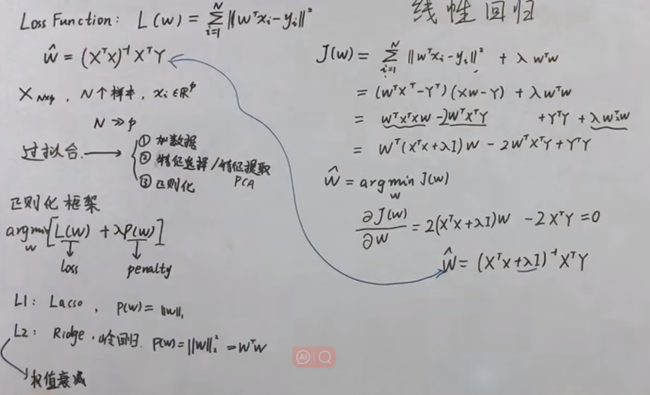 线性回归
Loss Function: L(w) = Σ_{i=1}^{N} ||wᵀxᵢ-yᵢ||²
ŵ = (XᵀX)⁻¹XᵀY
X_{N×p}, N个样本, xᵢ∈ℝᵖ
N≫p
过拟合 → ① 加数据
② 特征选择/特征提取
PCA
③ 正则化
正则化 框架
argmin_w [L(w) + λP(w)]
loss penalty
L1: Lasso, P(w)=||w||₁
L2: Ridge, 岭回归. P(w)=||w||₂² = wᵀw
权值衰减
J(w) = Σ_{i=1}^{N} ||wᵀxᵢ-yᵢ||² + λwᵀw
= (wᵀXᵀ-Yᵀ)(Xw-Y) + λwᵀw
= wᵀXᵀXw-2wᵀXᵀY +YᵀY+λwᵀw
= wᵀ(XᵀX+λI)w - 2wᵀXᵀY+YᵀY
ŵ = argmin_w J(w)
∂J(w)/∂w = 2(XᵀX+λI)w - 2XᵀY = 0
ŵ = (XᵀX+λI)⁻¹XᵀY